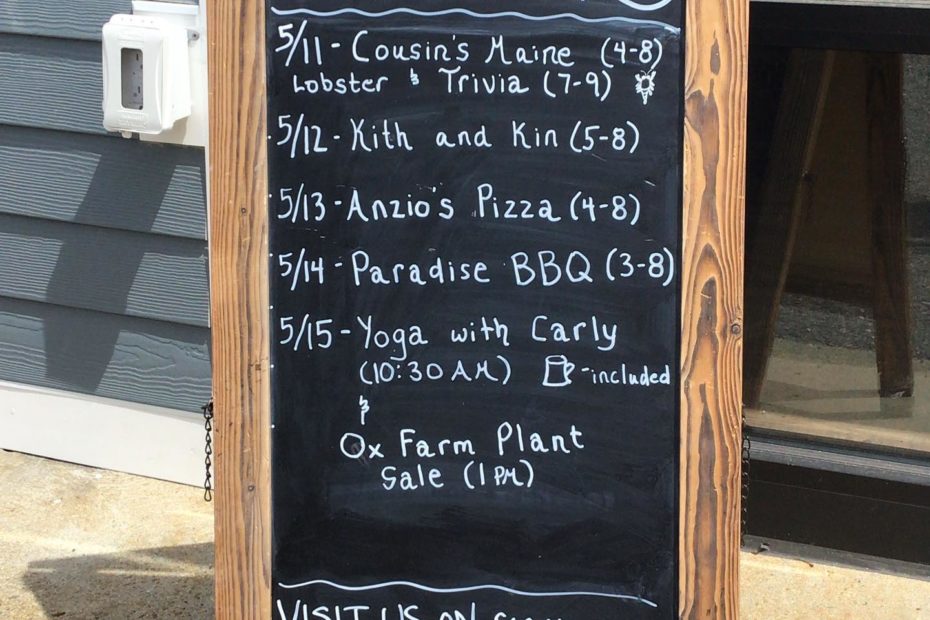 5/11 - Cousin's Maine (4-8)
Lobster & Trivia (7-9)
5/12 - Kith and Kin (5-8)
5/13 - Anzio's Pizza (4-8)
5/14 - Paradise BBQ (3-8)
5/15 - Yoga with Carly
(10:30 AM) -included
&
Ox Farm Plant
Sale (1 PM)
VISIT US ON